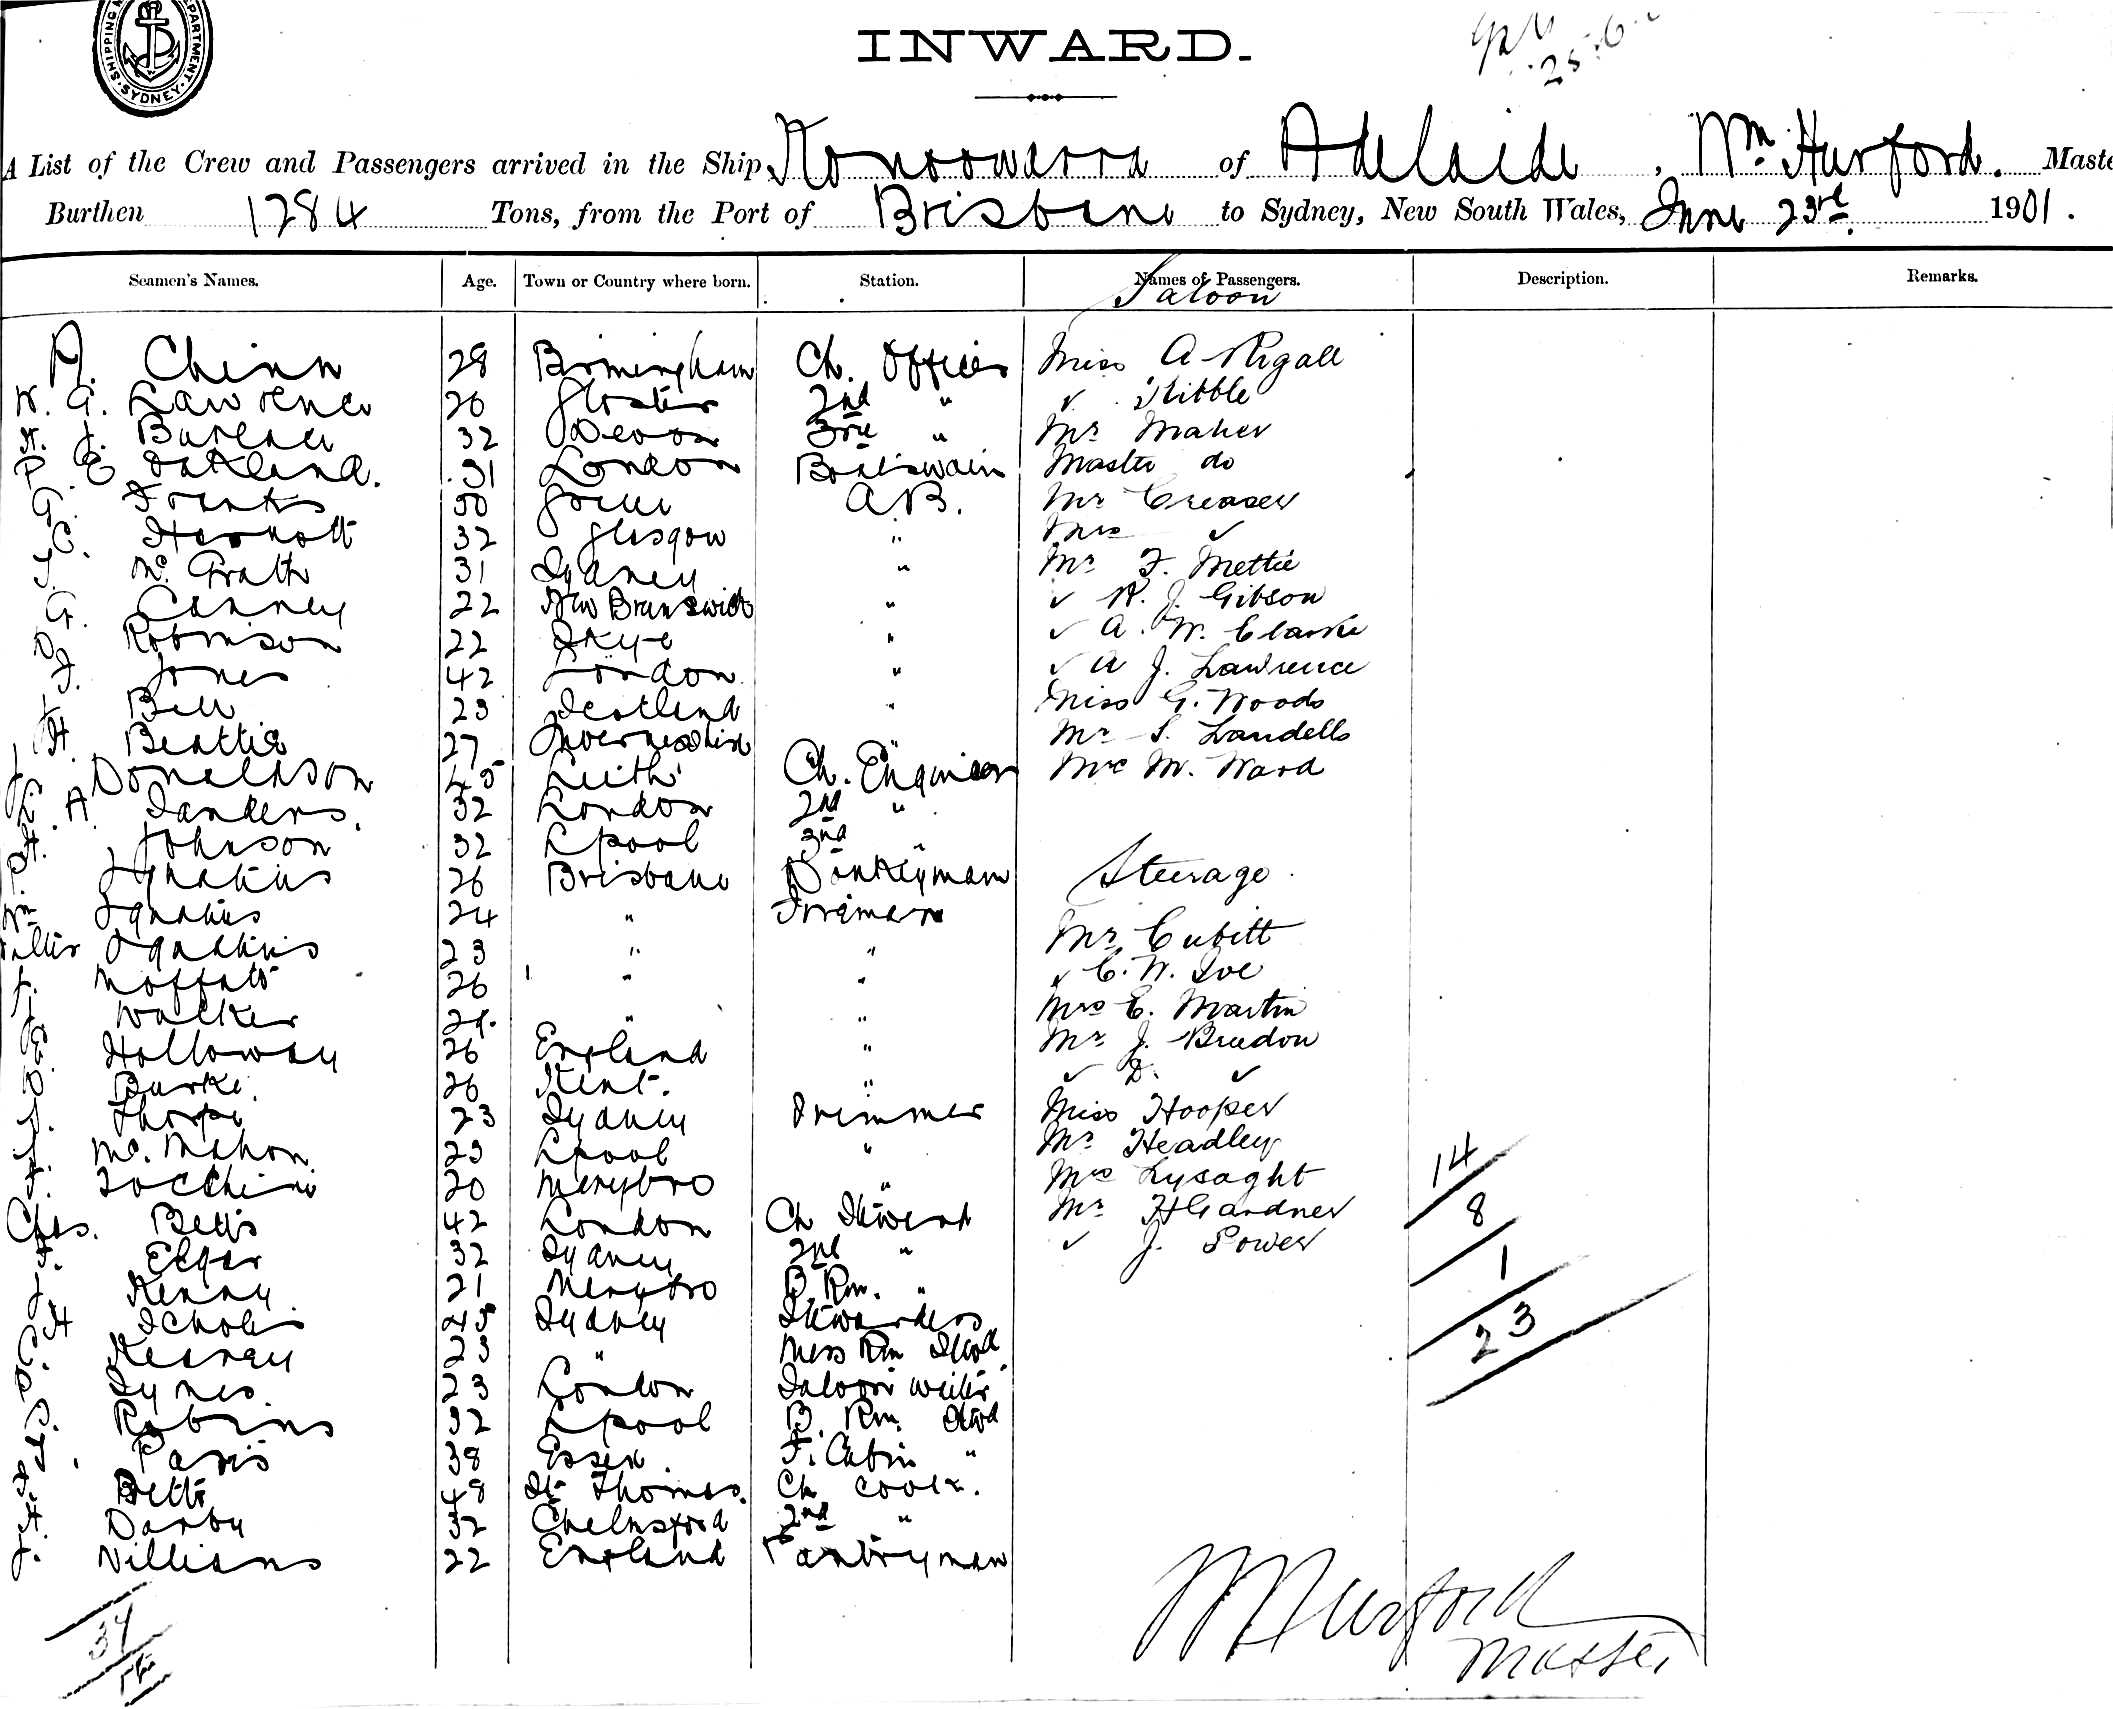 SHIPPING DEPARTMENT SYDNEY
INWARD.
A List of the Crew and Passengers arrived in the Ship Konoowarra of Adelaide, Wm Hurford. Maste
Burthen 1284 Tons, from the Port of Brisbane to Sydney, New South Wales, June 23rd 1901.
Seamen's Names. Age. Town or Country where born. Station. Names of Passengers. Description. Remarks.
Saloon
A. Chinn 28 Birmingham Ch. Officer Miss A Rigall
W. G. Lawrence 26 Gloster 2nd " ✓ Kibble
32 Devon 3rd " Mr Maher
P. E 31 London Boatswain Master do
G. 50 A.B. Mr Creaser
C. 32 Glasgow " Mrs ✓
J. Mc Grath 31 Sydney " Mr F. Mettie
G. Canney 22 New Brunswick " ✓ R. J. Gibson
D Robinson 22 Skye " ✓ A. W. Clarke
J. Jones 42 London " ✓ A J. Lawrence
Bell 23 Scotland " Miss G. Woods
H. Beattie 27 " Mr S. Landells
Donaldson 45 Leith Ch. Engineer M. Ward
A. Sanders. 32 London 2nd "
Johnson 32 Lpool 3rd "
Ignatius 26 Brisbane Donkeyman Steerage
Wm Ignatius 24 " Fireman Mr Cubitt
Ignatius 23 " " ✓ C. W. Ive
Moffatt 26 " " Mrs E. Martin
Walker " " Mr J. Bredon
Holloway 26 England " ✓ D. ✓
Burke. 26 Kent. " Miss Hooper
Thorpe 23 Sydney Trimmer Mr Headley
Mc. Mahon 23 Lpool " Mrs Lysaght
20 Marybro " Mr H Gardner
Chas. Betts 42 London Ch Steward ✓ J. Power
Elgar 32 Sydney 2nd "
Kenny 21 Marybro B. Rm. "
H 45 Sydney Stewardess
23 " Mess Rm Stwd
Synes. 23 London Saloon waiter
Robins 32 Lpool B. Rm. Stwd
Paris 38 Essex F. Cabin "
Betts 48 St Thomas. Ch cook.
Darby 32 Chelmsford 2nd "
J. Williams 22 England Pantryman
14
8
1
23
W Hurford
Master